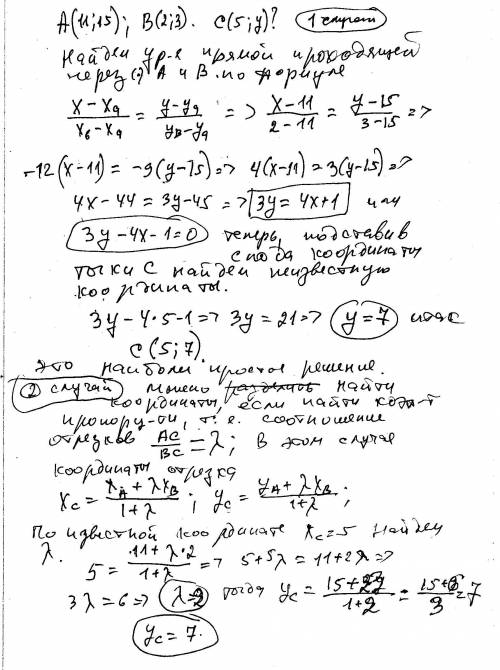 A(11;15); B(2;3). C(5;y)? 1 случай
Найдем ур-е прямой проходящей
через (·) A и B по формуле
x-xa/xb-xa = y-ya/yB-ya => x-11/2-11 = y-15/3-15 =>
-12(x-11) = -9(y-15) => 4(x-11) = 3(y-15) =>
4x-44 = 3y-45 => 3y = 4x+1 или
3y-4x-1=0 теперь, подставив
сюда координаты
точки C найдем неизвестную
координаты.
3y-4·5-1 => 3y = 21 => y=7
C(5;7)
это наиболи простое решение.
2 случай можно найти
координаты, если найти
т.е. соотношение
отрезков AC/BC = λ; В этом случае
координаты отрезка
xC = xA + λxB/1+λ ; yC = yA + λxB/1+λ ;
По известной координате xC=5 найдем
λ. 5 = 11+λ·2/1+λ => 5+5λ = 11+2λ =>
3λ = 6 => λ=2 тогда yC = 15+/1+2 = 15+6/3 = 7
yC = 7.